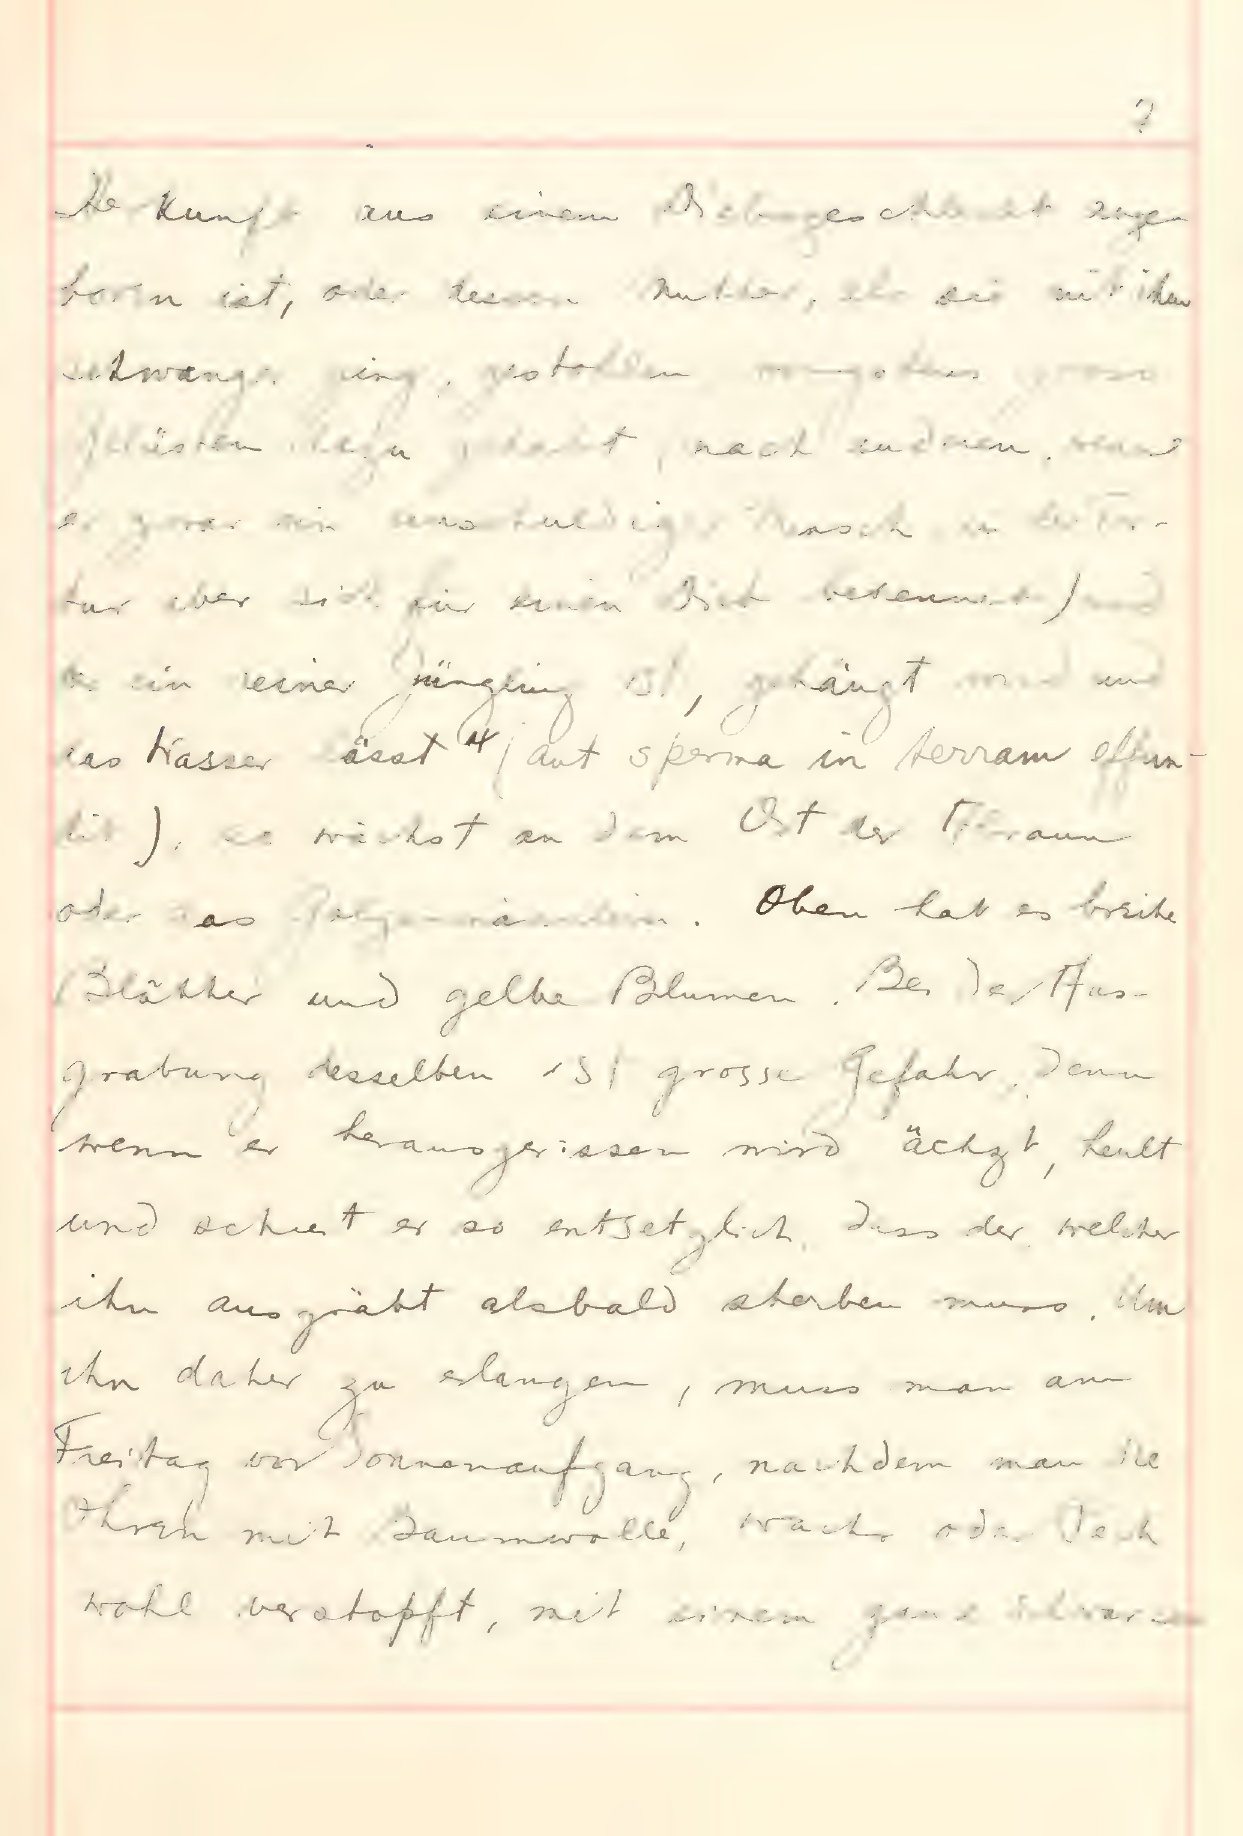 ?
Herkunft aus einem Diebsgeschlecht ange
boren ist, oder dessen Mutter, als sie mit ihm
schwanger ging, gestohlen wenigstens gross
Gelüsten dazu gehabt, nach andren, wenn
er zwar ein unschuldiger Mensch, in der Tor-
tur aber sich für einen Dieb bekennet) und
der ein reiner Jüngling ist, gehängt wird und
das Wasser lässt (aut sperma in terram effun-
dit), so wächst an dem Ort der Alraun
oder das Galgenmännlein. Oben hat es breite
Blätter und gelbe Blumen. Bei der Aus-
grabung desselben ist grosse Gefahr, denn
wenn er herausgerissen wird ächzt, heult
und schreit er so entsetzlich, dass der welcher
ihn ausgräbt alsbald sterben muss. Um
ihn daher zu erlangen, muss man am
Freitag vor Sonnenaufgang, nachdem man die
Ohren mit Baumwolle, Wachs oder Pech
wohl verstopft, mit einem ganz schwarzen